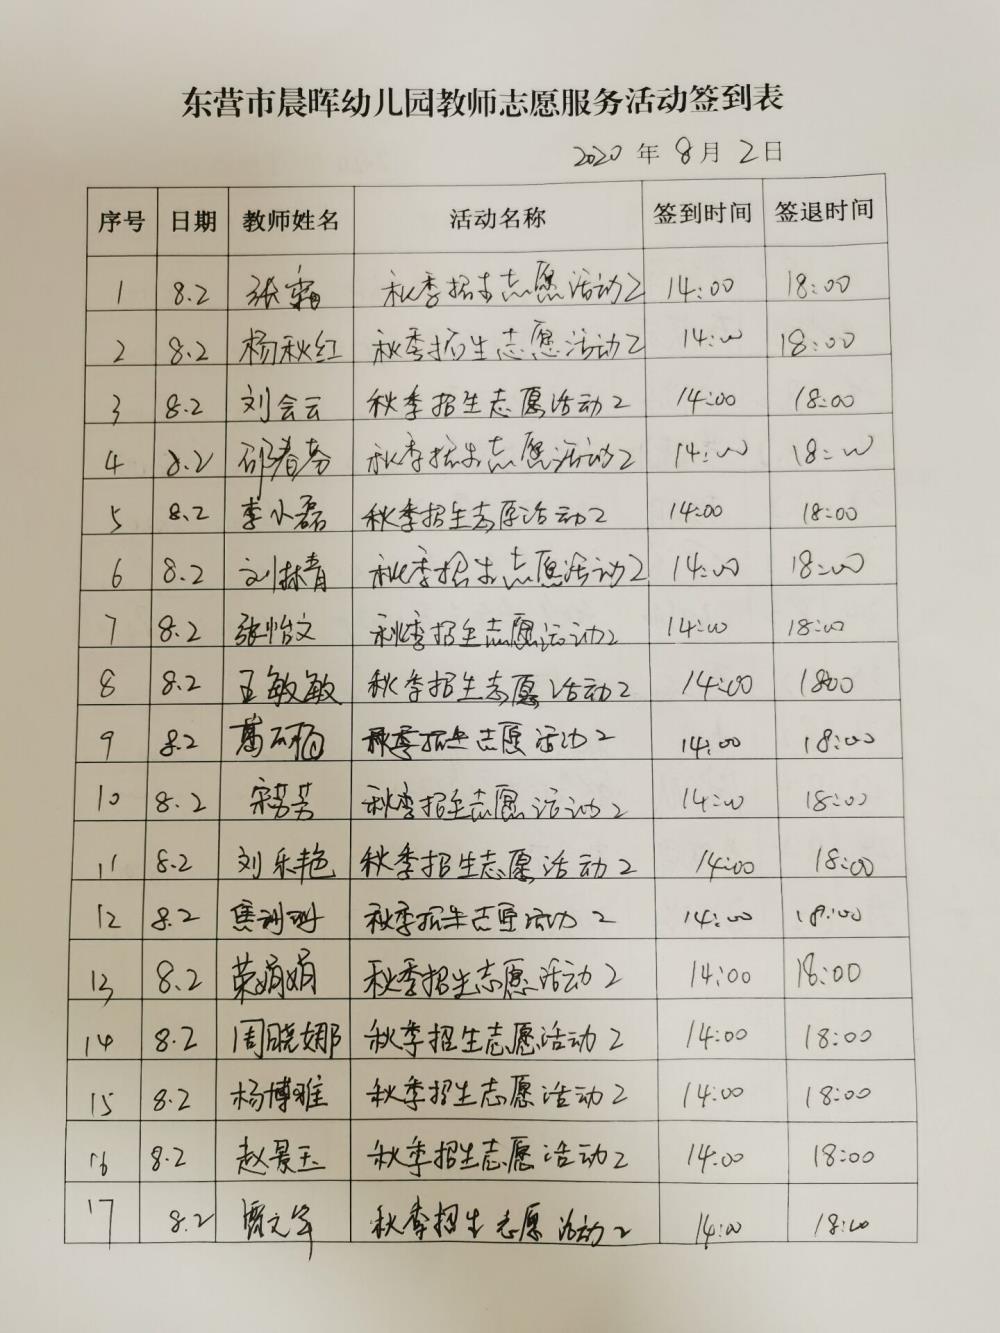 东营市晨晖幼儿园教师志愿服务活动签到表
2020 年 8 月 2 日
序号 日期 教师姓名 活动名称 签到时间 签退时间
1 8.2 张霜 秋季招生志愿活动2 14:00 18:00
2 8.2 杨秋红 秋季招生志愿活动2 14:00 18:00
3 8.2 刘会云 秋季招生志愿活动2 14:00 18:00
4 8.2 邵春芳 秋季招生志愿活动2 14:00 18:00
5 8.2 李小磊 秋季招生志愿活动2 14:00 18:00
6 8.2 刘林青 秋季招生志愿活动2 14:00 18:00
7 8.2 张怡文 秋季招生志愿活动2 14:00 18:00
8 8.2 王敏敏 秋季招生志愿活动2 14:00 1800
9 8.2 秋季招生志愿活动2 14:00 18:00
10 8.2 宋芳芳 秋季招生志愿活动2 14:00 18:00
11 8.2 刘乐艳 秋季招生志愿活动2 14:00 18:00
12 8.2 秋季招生志愿活动2 14:00 18:00
13 8.2 荣娟娟 秋季招生志愿活动2 14:00 18:00
14 8.2 周晓娜 秋季招生志愿活动2 14:00 18:00
15 8.2 杨博雅 秋季招生志愿活动2 14:00 18:00
16 8.2 赵景玉 秋季招生志愿活动2 14:00 18:00
17 8.2 秋季招生志愿活动2 14:00 18:00